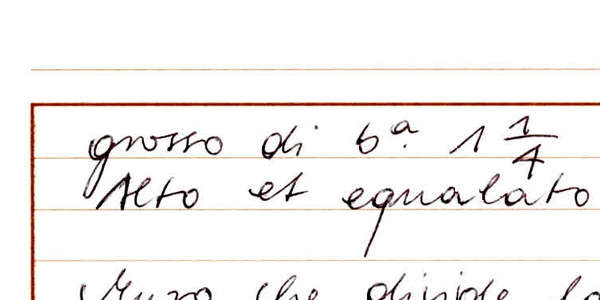 grosso di 6ª. 1 1/4
Alto et equalato
Muro che divide la